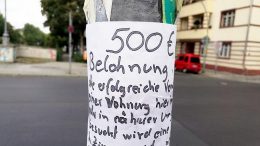 500 €
Belohnung
erfolgreiche Ver
Wohnung hier
in näherer Um
gesucht wird eine